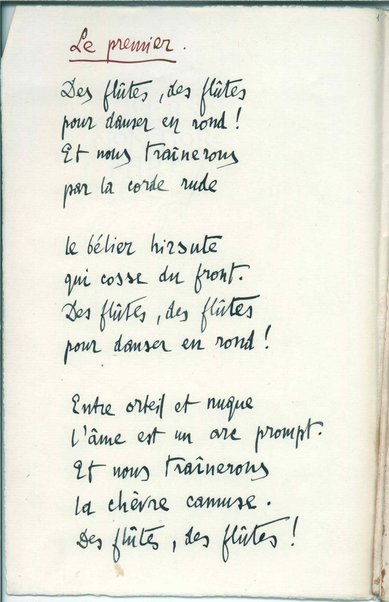 Le premier.
Des flûtes, des flûtes
pour danser en rond !
Et nous traînerons
par la corde rude
le bélier hirsute
qui cosse du front.
Des flûtes, des flûtes
pour danser en rond !
Entre orteil et nuque
l'âme est un arc prompt.
Et nous traînerons
la chèvre camuse.
Des flûtes, des flûtes !